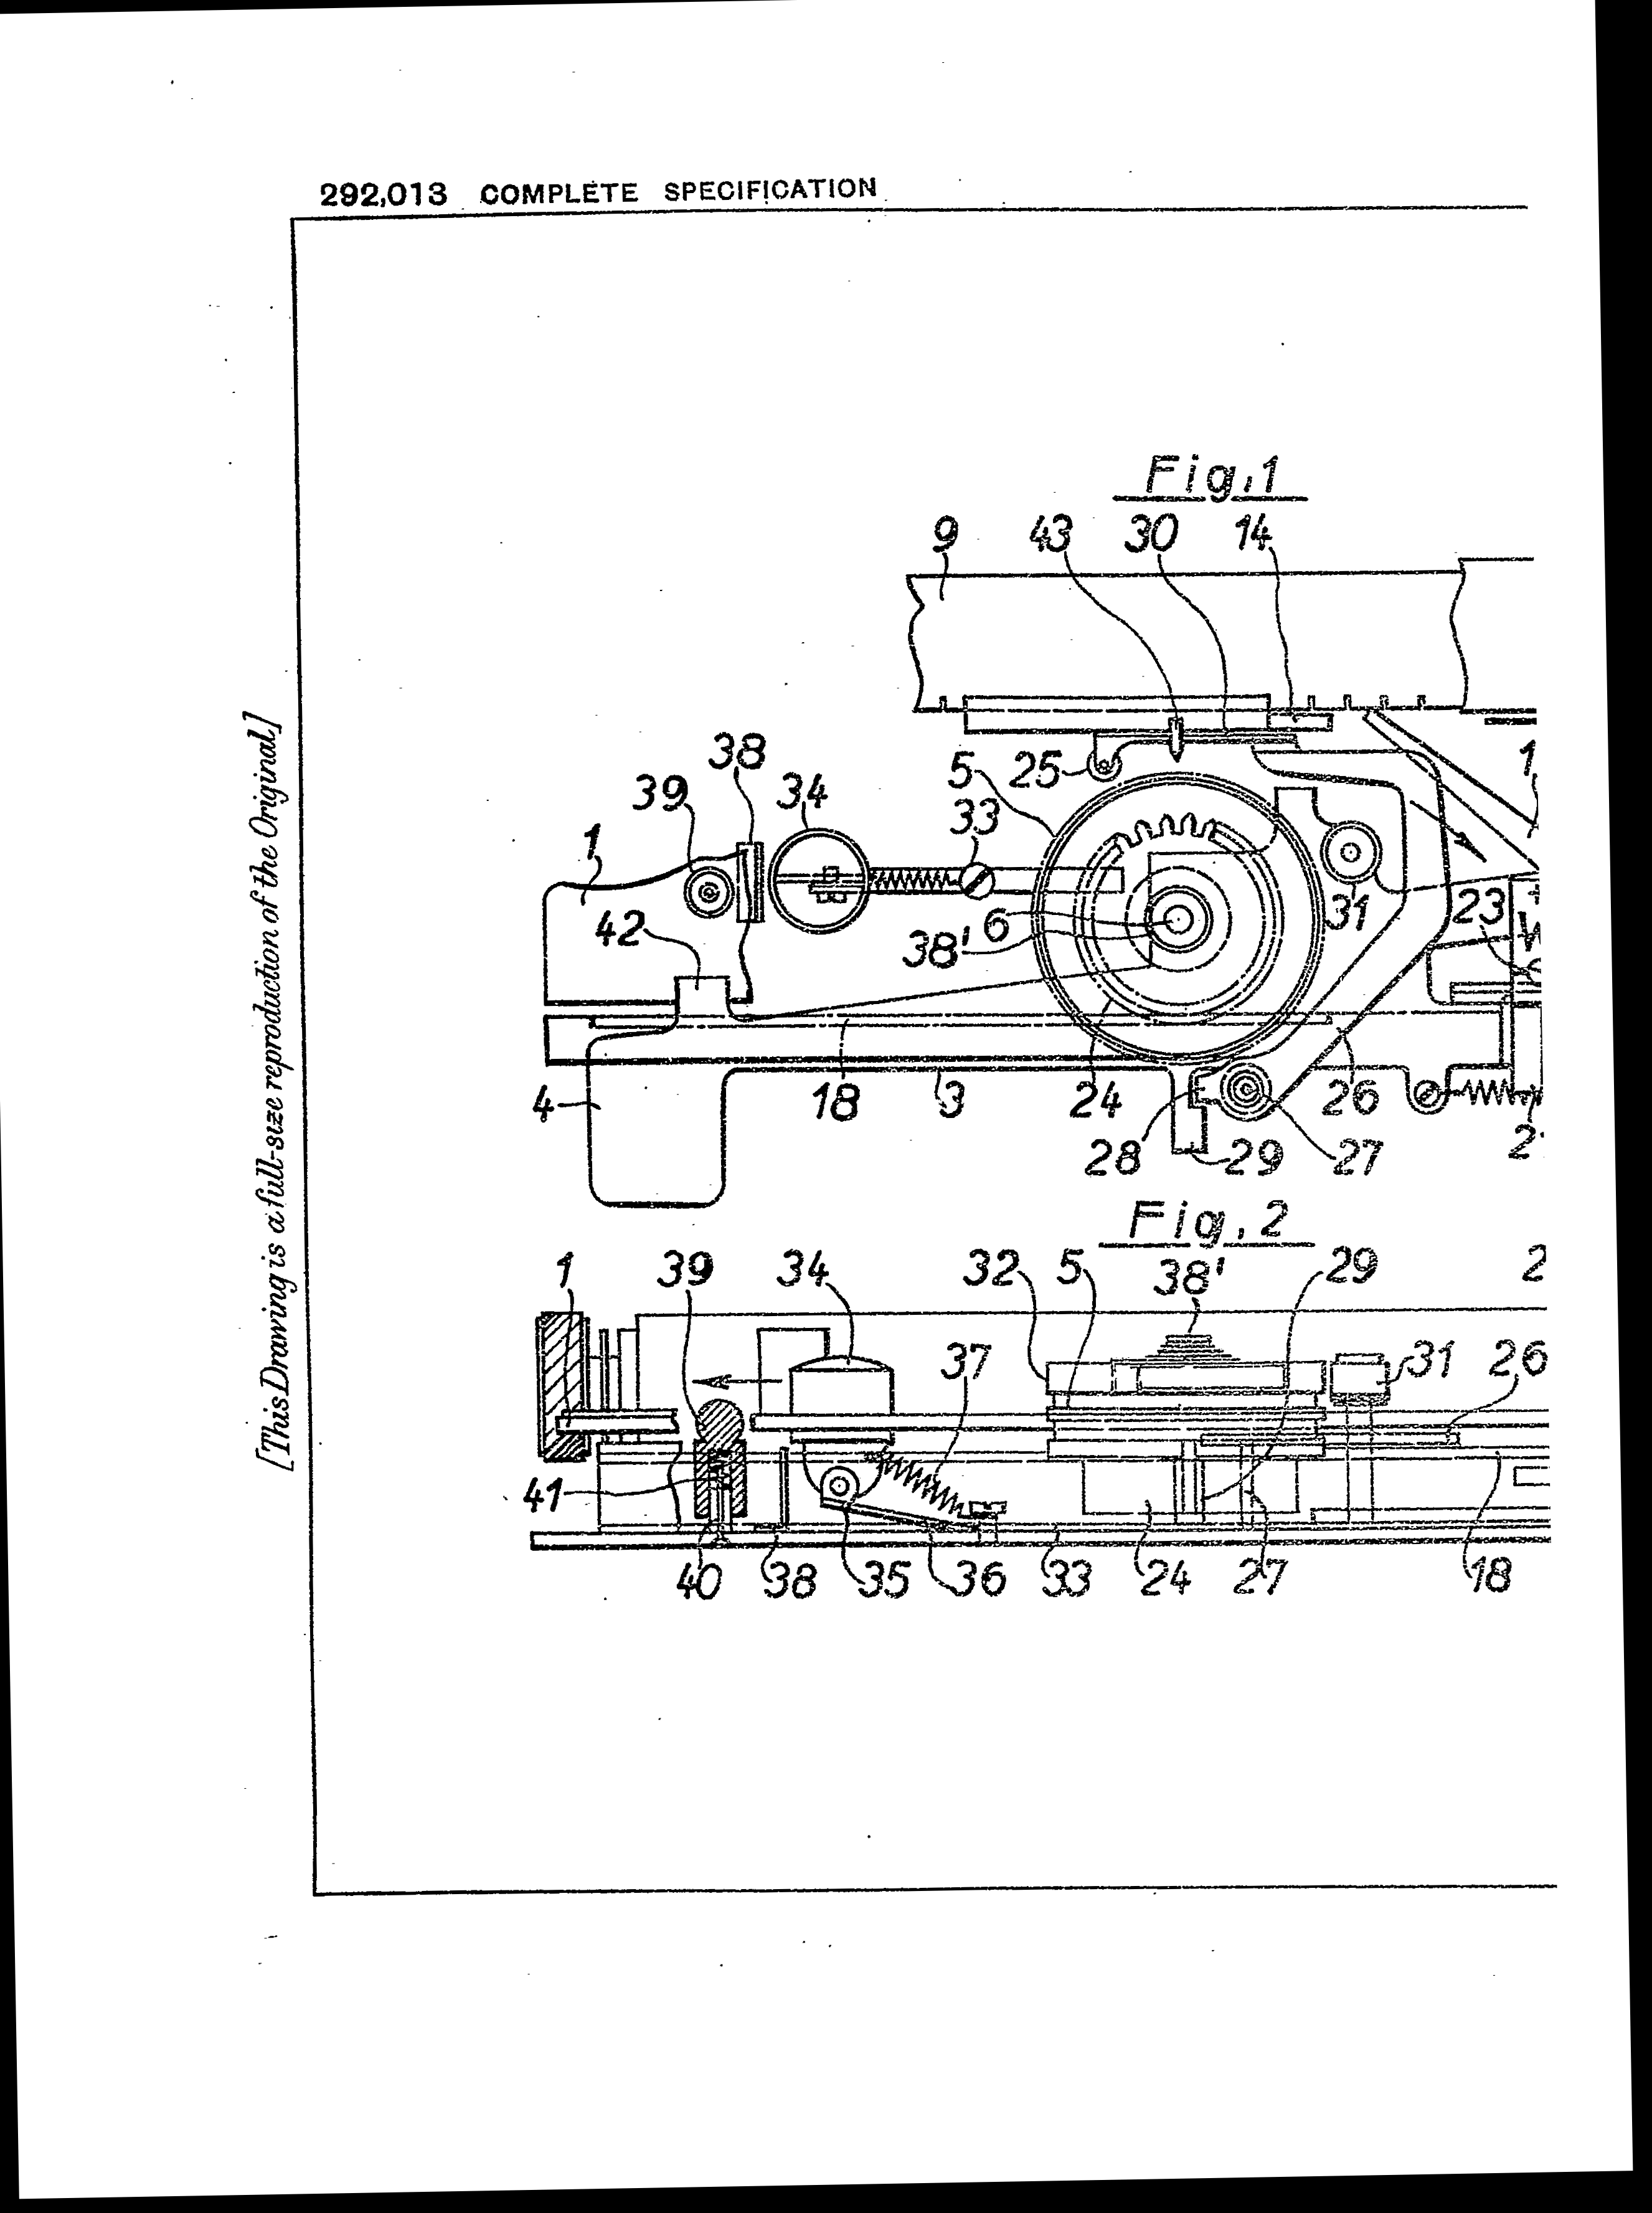 292,013 COMPLETE SPECIFICATION
[This Drawing is a full-size reproduction of the Original]
Fig.1
9 43 30 14
38 5 25 1
39 34 33
1
42 6 31 23
38'
4 18 3 24 26
28 29 27 2
Fig.2
1 39 34 32 5 38' 29 2
37 31 26
41
40 38 35 36 33 24 27 18